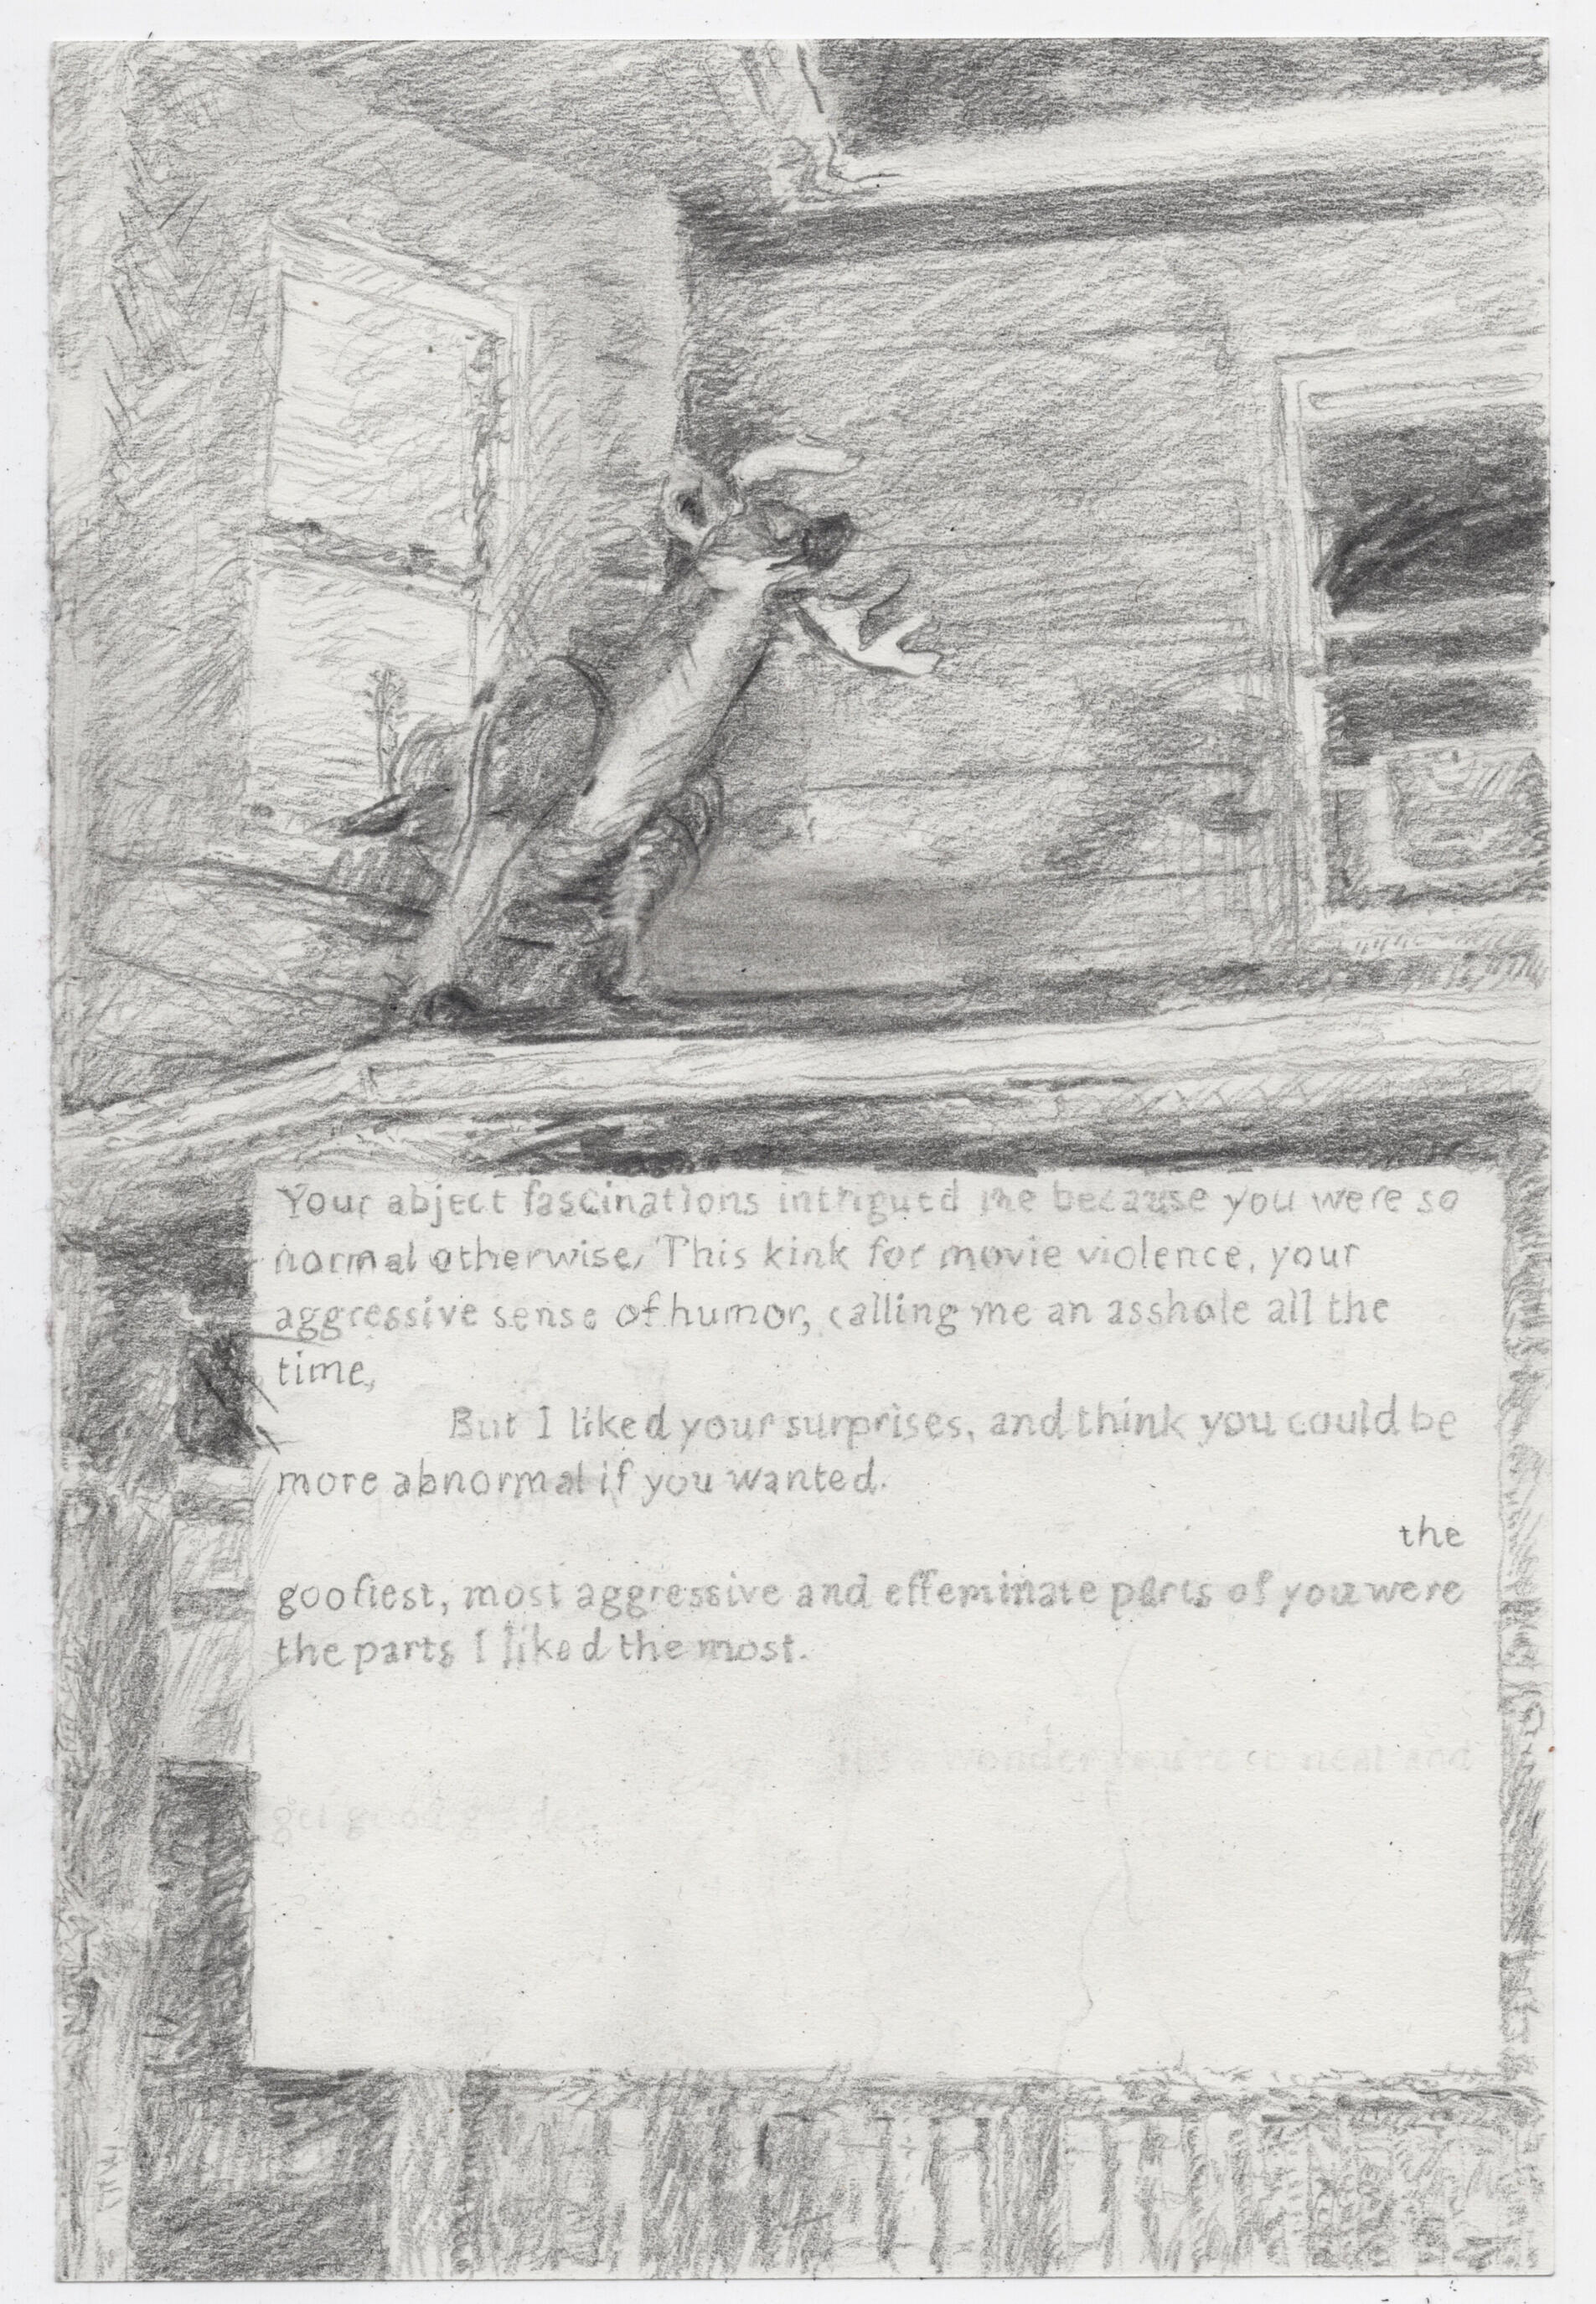 Your abject fascinations intrigued me because you were so
normal otherwise, This kink for movie violence, your
aggressive sense of humor, calling me an asshole all the
time,
But I liked your surprises, and think you could be
more abnormal if you wanted.
the
goofiest, most aggressive and effeminate parts of you were
the parts I liked the most.
wonder you're so neat and
get good